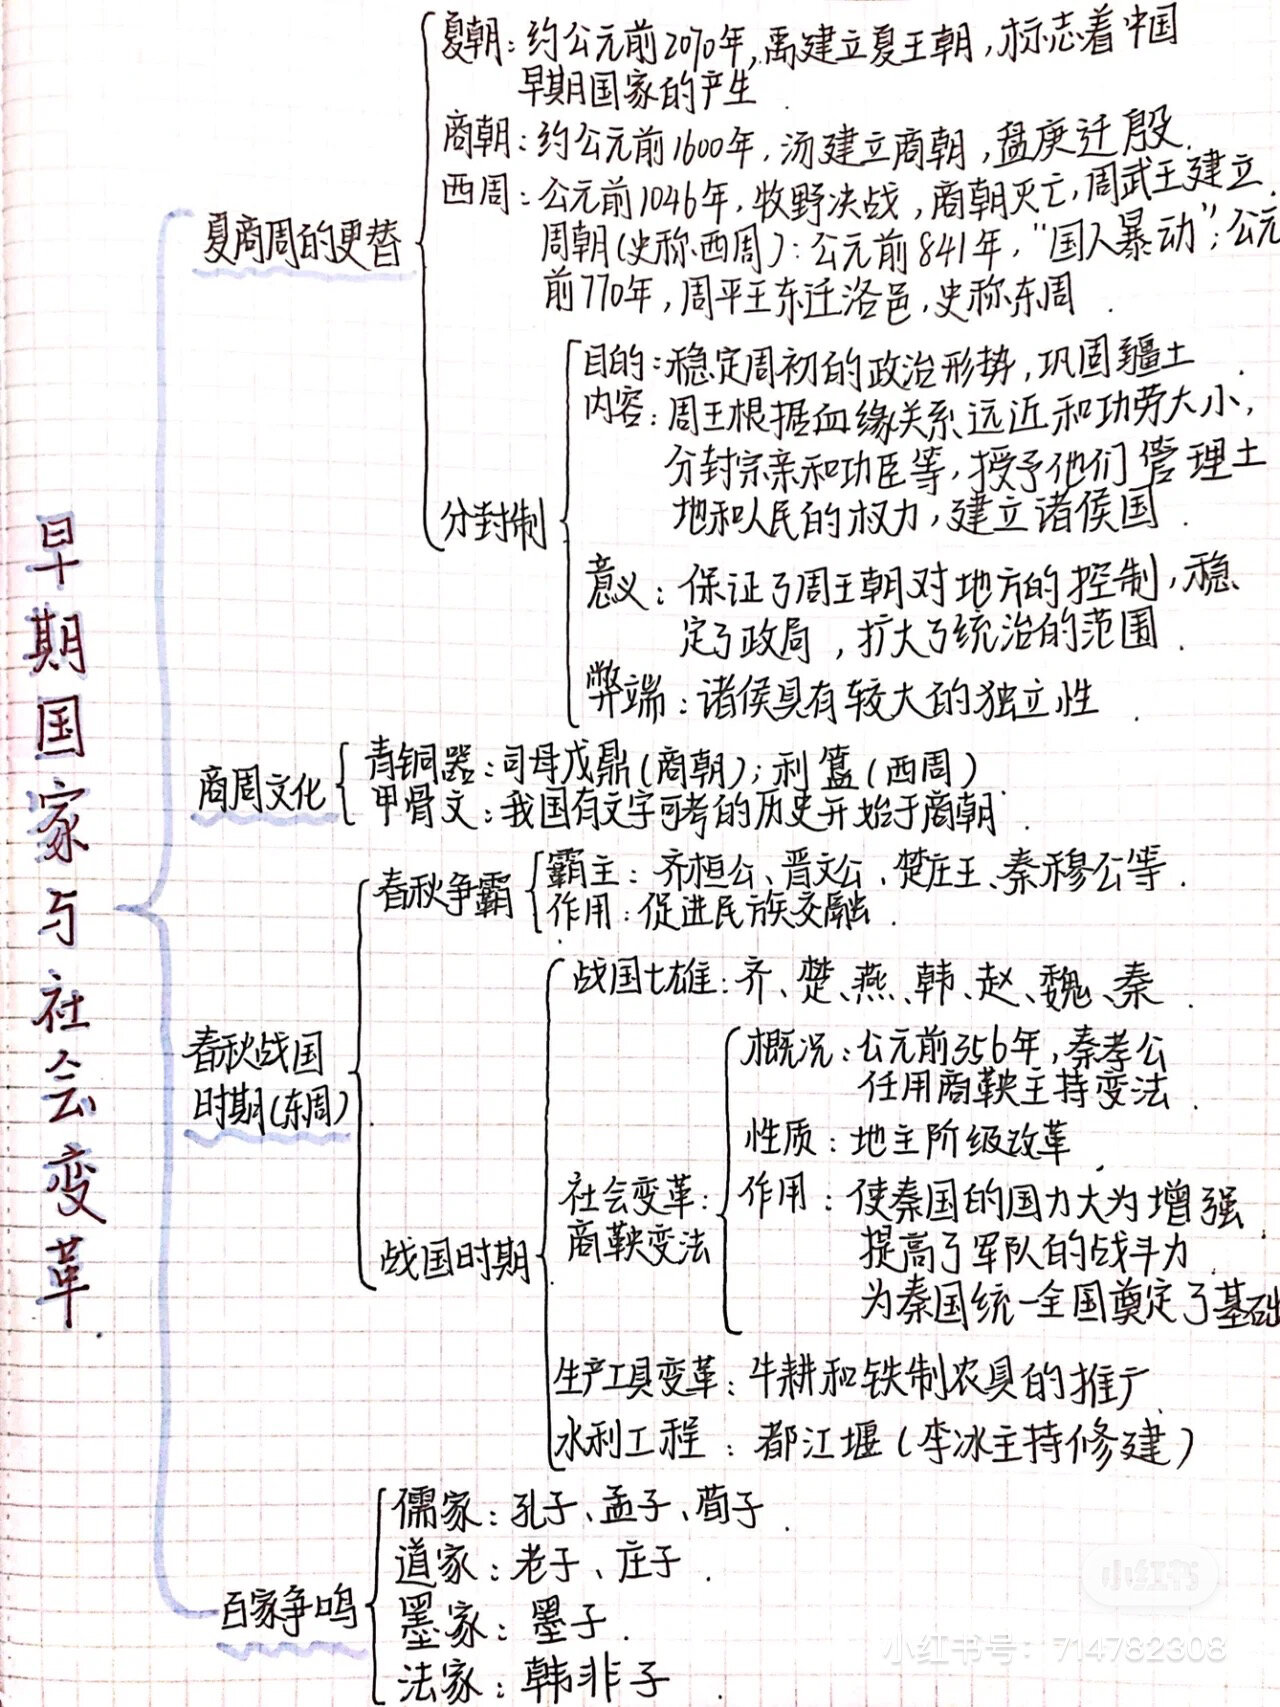 早期国家与社会变革
夏商周的更替
夏朝：约公元前2070年，禹建立夏王朝，标志着中国
早期国家的产生．
商朝：约公元前1600年，汤建立商朝，盘庚迁殷．
西周：公元前1046年，牧野决战，商朝灭亡，周武王建立
周朝（史称西周）：公元前841年，“国人暴动”；公元
前770年，周平王东迁洛邑，史称东周．
分封制
目的：稳定周初的政治形势，巩固疆土．
内容：周王根据血缘关系远近和功劳大小，
分封宗亲和功臣等，授予他们管理土
地和人民的权力，建立诸侯国．
意义：保证了周王朝对地方的控制，稳
定了政局，扩大了统治的范围．
弊端：诸侯具有较大的独立性．
商周文化
青铜器：司母戊鼎（商朝）；利簋（西周）
甲骨文：我国有文字可考的历史开始于商朝．
春秋战国
时期（东周）
春秋争霸
霸主：齐桓公、晋文公、楚庄王、秦穆公等．
作用：促进民族交融．
战国时期
战国七雄：齐、楚、燕、韩、赵、魏、秦．
社会变革：
商鞅变法
概况：公元前356年，秦孝公
任用商鞅主持变法．
性质：地主阶级改革．
作用：使秦国的国力大为增强，
提高了军队的战斗力．
为秦国统一全国奠定了基础
生产工具变革：牛耕和铁制农具的推广．
水利工程：都江堰（李冰主持修建）
百家争鸣
儒家：孔子、孟子、荀子．
道家：老子、庄子．
墨家：墨子．
法家：韩非子．
小红书
小红书号：714782308